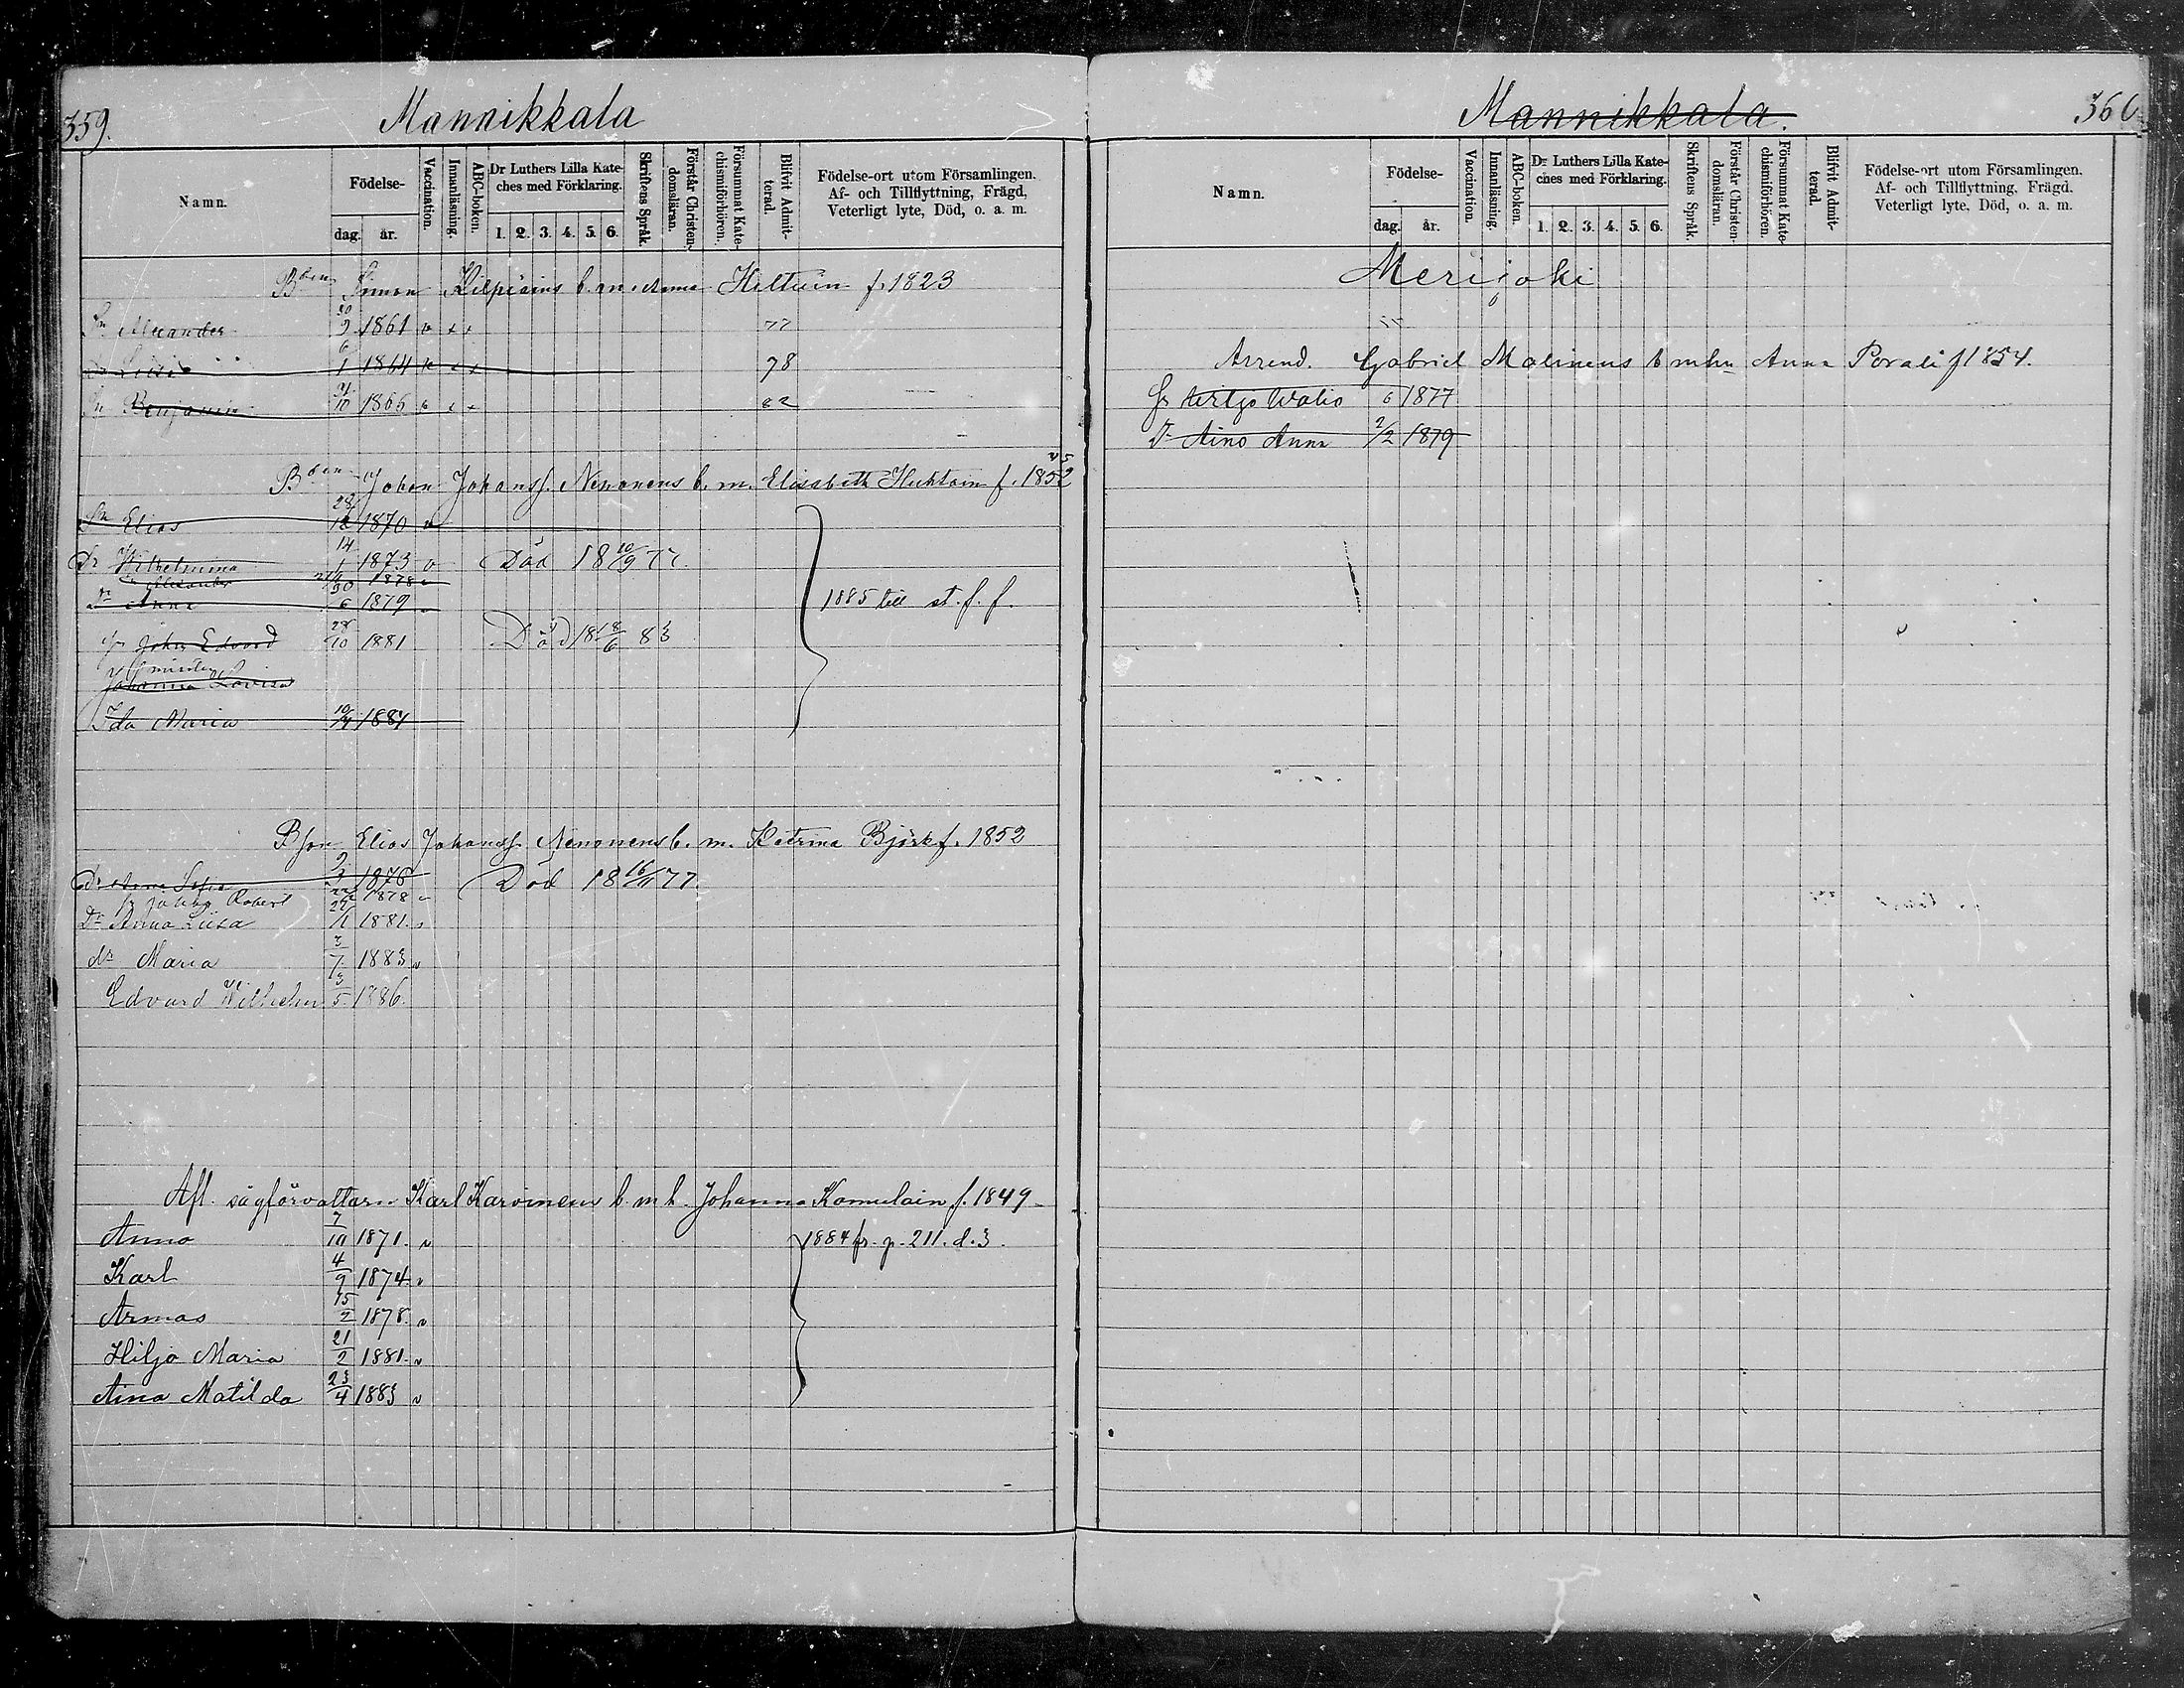 359.
Mannikkala
Namn.
Födelse-
dag.
år.
Vaccination.
Innanläsning.
ABC-boken.
Dr Luthers Lilla Kate-
ches med Förklaring.
1. 2. 3. 4. 5. 6.
Skriftens Språk.
Förstår Christen-
domsläran.
Försummat Kate-
chismiförhören.
Blifvit Admit-
terad.
Födelse-ort utom Församlingen.
Af- och Tillflyttning, Frägd,
Veterligt lyte, Död, o. a. m.
Simon b. m. Anna f. 1823
Sn Alexander 1861 77
1 1864 78
Sn Benjamin 10 1866 82
Johan Johanss. Nenonens b. m. Elisabeth f. 1852
Sn Elias 28/12 1870
Dr Wilhelmina 14/1 1873 v Död 18 10/9 77.
Alexander 1878
Dr Anna 30/6 1879
Johan Edvard 28/10 1881 Död 18 18/6 83
1885 till st. f. f.
Johanna Lovisa
Ida Maria 10/4 1884
Elias Johanss. Nenonens b. m. Katrina Björk f. 1852
Dr Anna Sofia 1876 Död 18 16/11 77.
Robert 1878
Dr Anna Liisa 1881.
dr Maria 3/7 1883 v
Edvard Wilhelm 3/5 1886.
Afl. sågförvaltarn Karl Karvinens b. m h. Johanna Komulain f. 1849
Anna 7/10 1871. v 1884 fr. p. 211. d. 3.
Karl 4/9 1874. v
Armas 15/2 1878. v
Hilja Maria 21/2 1881. v
Aina Matilda 23/4 1883 v
Mannikkala.
366
Namn.
Födelse-
dag.
år.
Vaccination.
Innanläsning.
ABC-boken.
Dr Luthers Lilla Kate-
ches med Förklaring.
1. 2. 3. 4. 5. 6.
Skriftens Språk.
Förstår Christen-
domsläran.
Försummat Kate-
chismiförhören.
Blifvit Admit-
terad.
Födelse-ort utom Församlingen.
Af- och Tillflyttning, Frägd.
Veterligt lyte, Död, o. a. m.
Merijoki
Arrend. Gabriel Malinens b mhu Anna Porali f 1854.
6 1877
Dr Aino Anna 2/2 1879